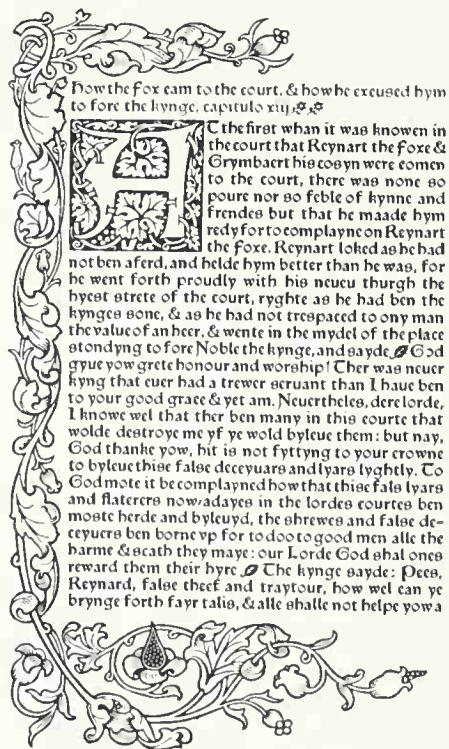 How the fox cam to the court, & how he excused hym
to fore the kynge. capitulo xiij.
AT the first whan it was knowen in
the court that Reynart the foxe &
Grymbaert his cosyn were comen
to the court, there was none so
poure nor so feble of kynne and
frendes but that he maade hym
redy for to complayne on Reynart
the foxe. Reynart loked as he had
not ben aferd, and helde hym better than he was, for
he went forth proudly with his neueu thurgh the
hyest strete of the court, ryghte as he had ben the
kynges sone, & as he had not trespaced to ony man
the value of an heer, & wente in the mydel of the place
stondyng to fore Noble the kynge, and sayde God
gyue yow grete honour and worship! Ther was neuer
kyng that euer had a trewer seruant than I haue ben
to your good grace & yet am. Neuertheles, dere lorde,
I knowe wel that ther ben many in this courte that
wolde destroye me yf ye wold byleue them: but nay,
God thanke yow, hit is not fyttyng to your crowne
to byleue thise false deceyuars and lyars lyghtly. To
God mote it be complayned how that thise fals lyars
and flaterers now-adayes in the lordes courtes ben
moste herde and byleuyd, the shrewes and false de-
ceyuers ben borne vp for to doo to good men alle the
harme & scath they maye: our Lorde God shal ones
reward them their hyre The kynge sayde: Pees,
Reynard, false theef and traytour, how wel can ye
brynge forth fayr talis, & alle shalle not helpe yow a